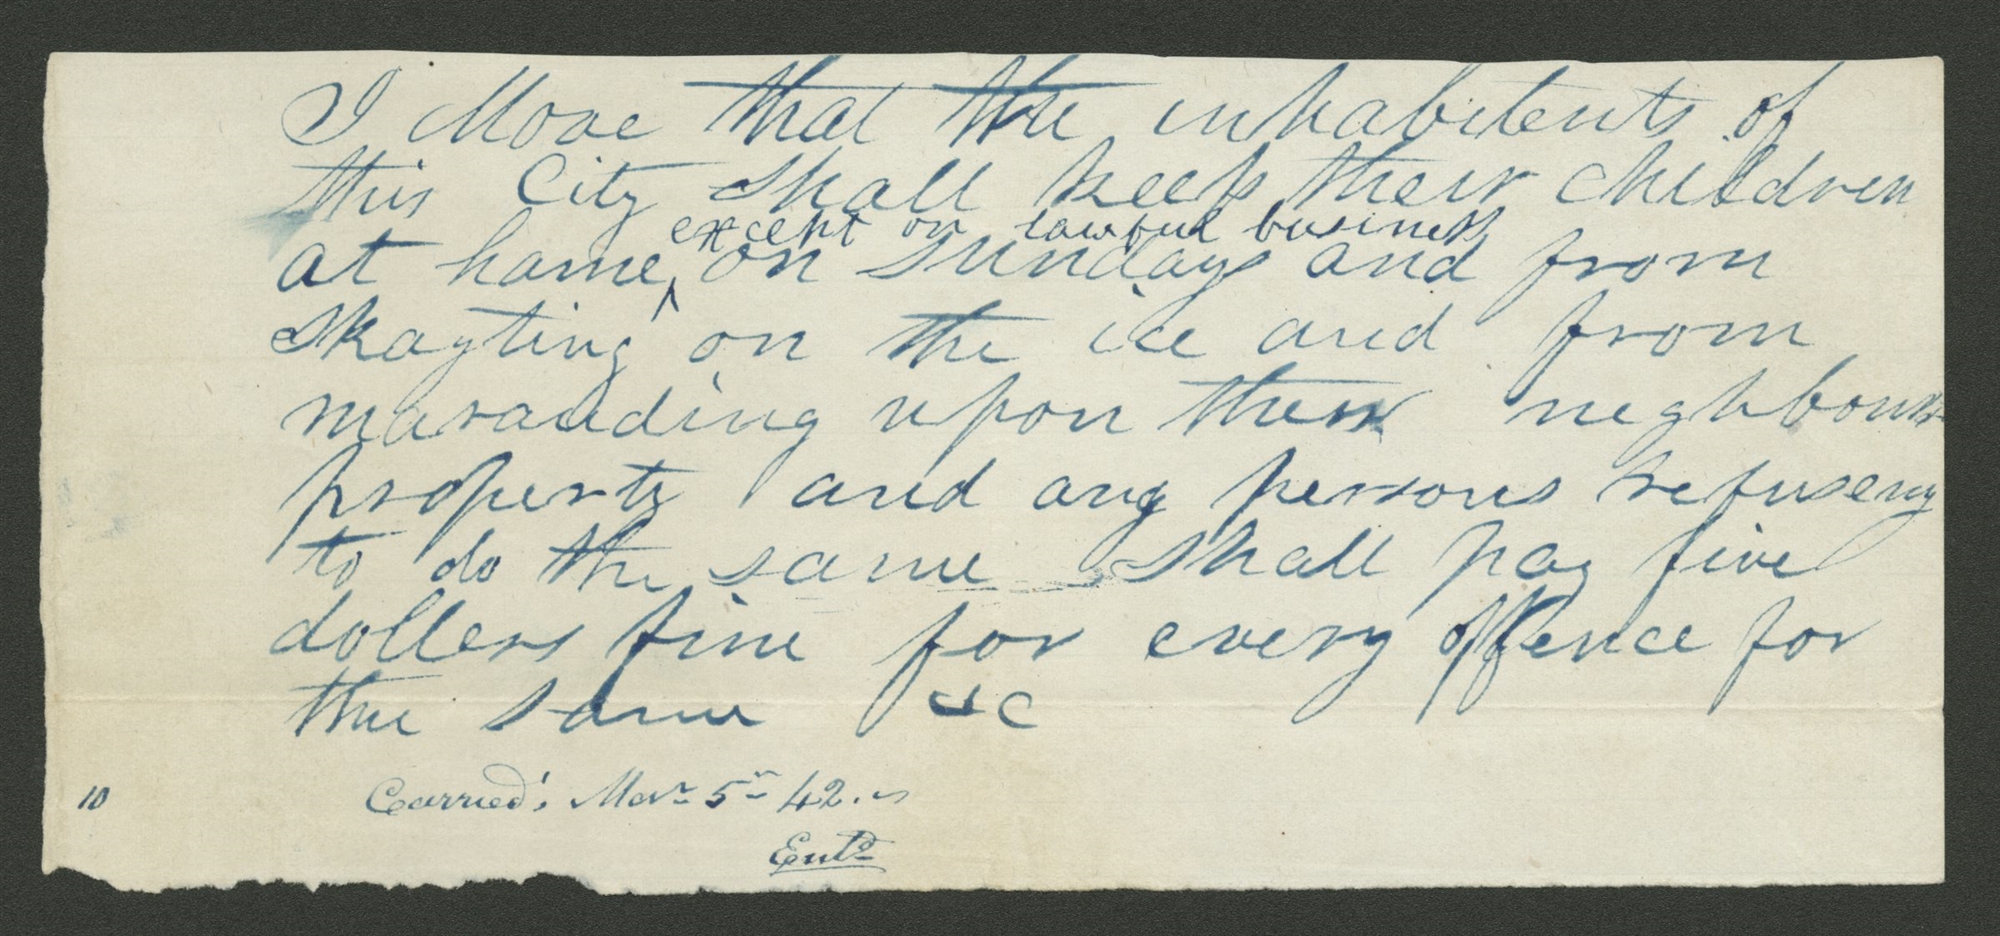 I Move that the inhabitents of
this City shall keep their children
except on lawful business
at hame ^ on Sundays and from
Skayting on the ice and from
marauding upon their neghbours
property and any persons refuseng
to do the same shall pay five
dollers fine for every offence for
the same &C
10 Carried; Mar. 5th 42.
Entd